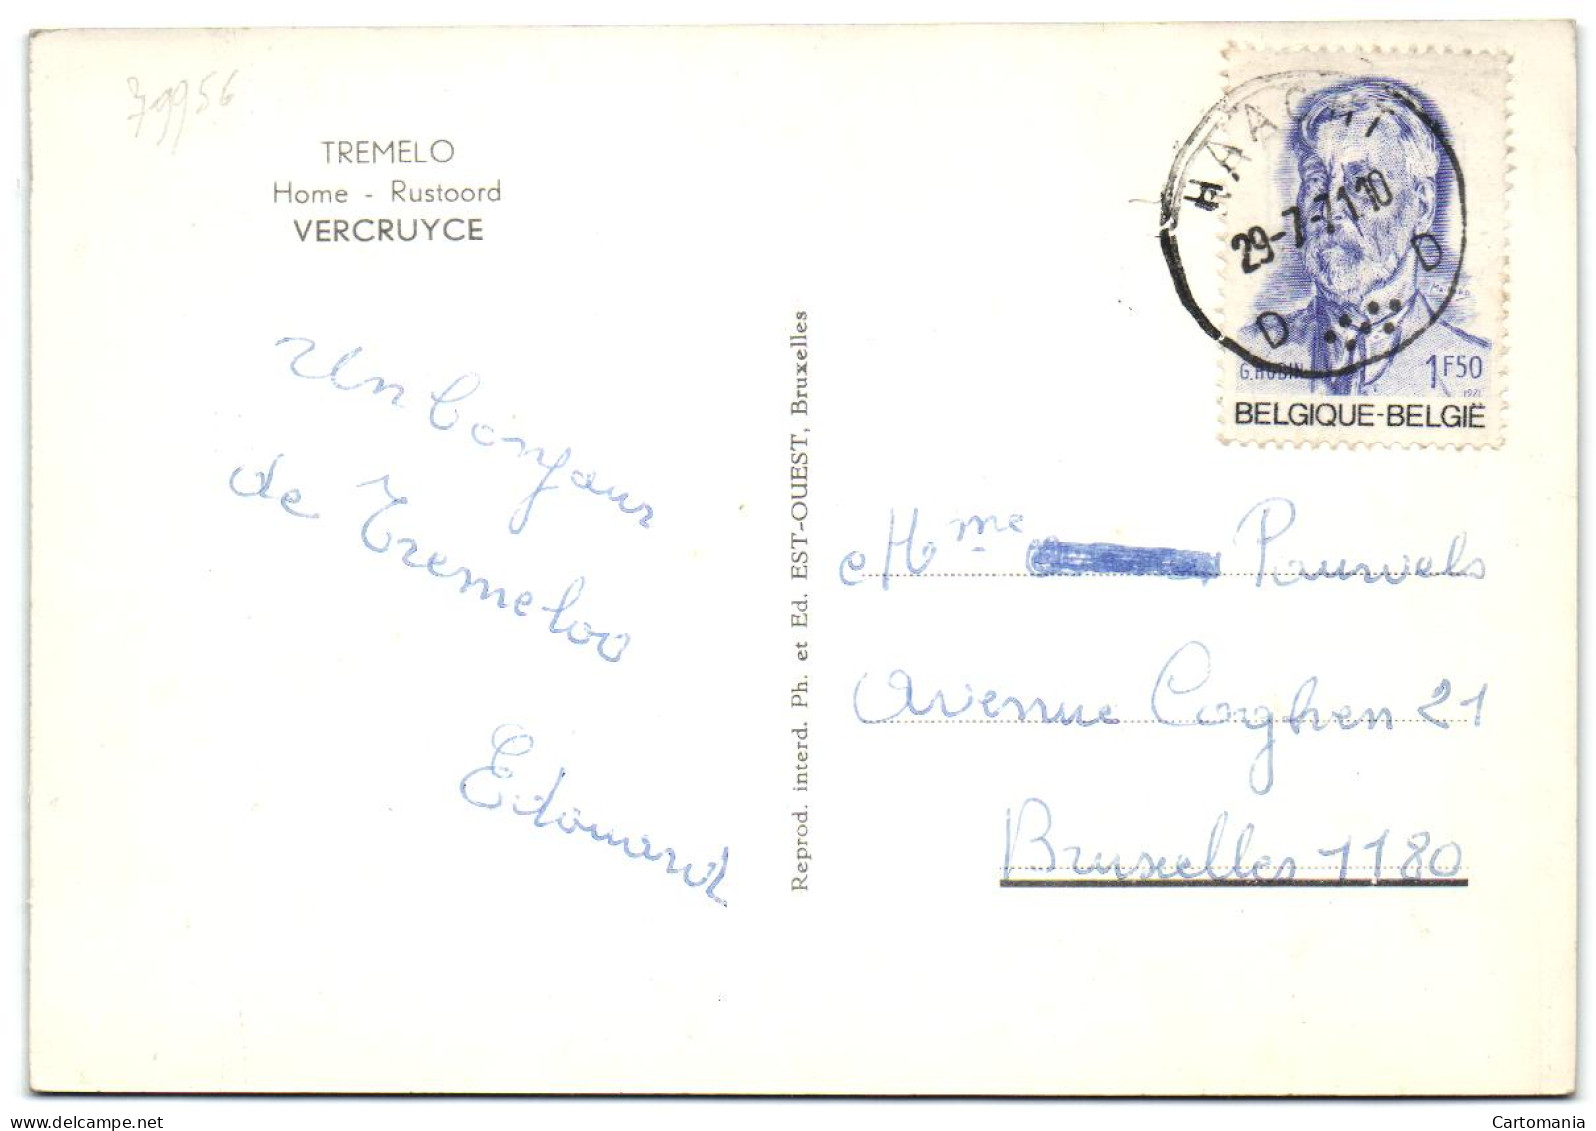 79956
TREMELO
Home - Rustoord
VERCRUYCE
Un bonjour
de Tremeloo
Edouard
Reprod. interd. Ph. et Ed. EST-OUEST, Bruxelles
HAACHT
29-7-71 10
D D
G. HUBIN
1F50
1971
BELGIQUE-BELGIË
Mme Pauwels
Avenue Coghen 21
Bruxelles 1180
Cartomania